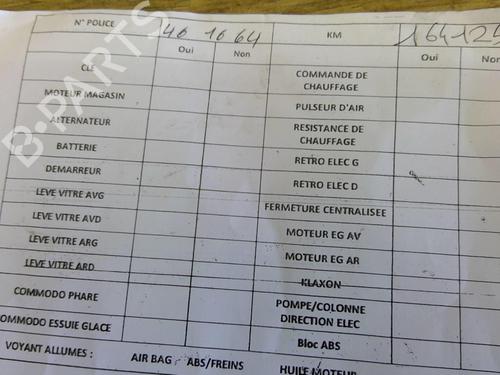 N° POLICE 46 1664 KM 164125
Oui Non Oui Non
CLE COMMANDE DE CHAUFFAGE
MOTEUR MAGASIN PULSEUR D'AIR
ALTERNATEUR RESISTANCE DE CHAUFFAGE
BATTERIE RETRO ELEC G
DEMARREUR RETRO ELEC D
LEVE VITRE AVG FERMETURE CENTRALISEE
LEVE VITRE AVD MOTEUR EG AV
LEVE VITRE ARG MOTEUR EG AR
LEVE VITRE ARD KLAXON
COMMODO PHARE POMPE/COLONNE DIRECTION ELEC
COMMODO ESSUIE GLACE Bloc ABS
VOYANT ALLUMES : AIR BAG ABS/FREINS HUILE MOTEUR
B-PARTS